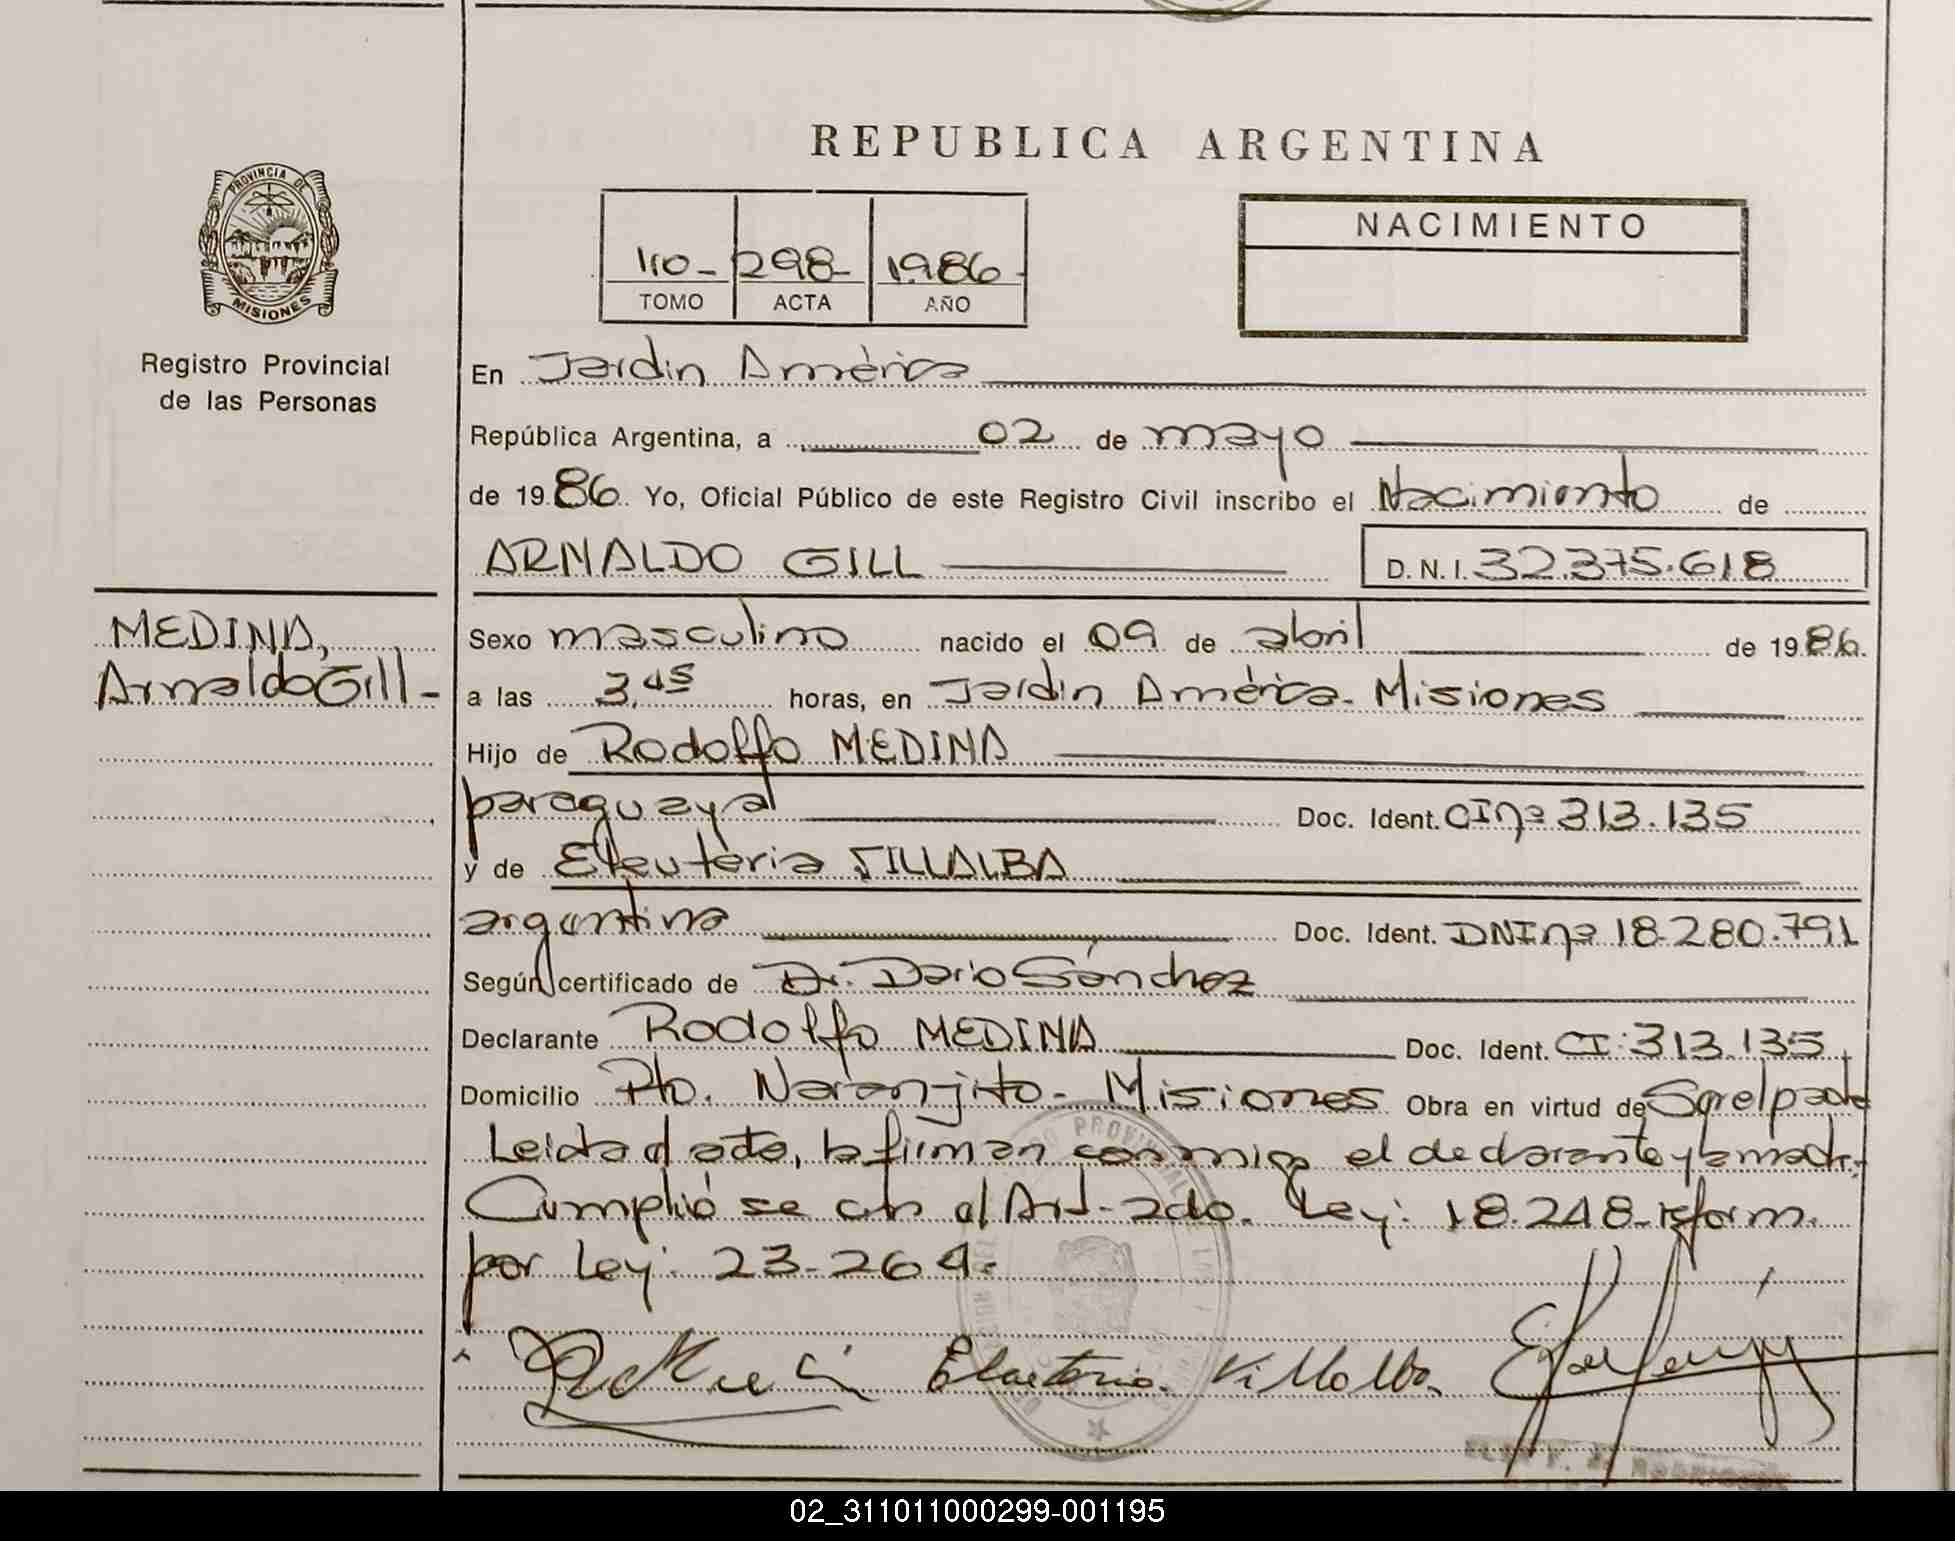 REPUBLICA ARGENTINA
PROVINCIA DE
MISIONES
Registro Provincial
de las Personas
1º- 298- 1986-
TOMO ACTA AÑO
NACIMIENTO
En Jardin América
República Argentina, a 02 de mayo
de 1986 Yo, Oficial Público de este Registro Civil inscribo el Nacimiento de
ARNALDO GILL D. N. I. 32.375.618
MEDINA,
Arnaldo Gill-
Sexo masculino nacido el 09 de abril de 1986.
a las 3,45 horas, en Jardin América. Misiones
Hijo de Rodolfo MEDINA
paraguaya Doc. Ident. CI nº 313.135
y de Eleuteria VILLALBA
argentina Doc. Ident. DNI nº 18.280.791
Según certificado de Dr. Dario Sánchez
Declarante Rodolfo MEDINA Doc. Ident. CI: 313.135
Domicilio Pto. Naranjito- Misiones Obra en virtud de
Leida el acta, la firman conmigo el declarante y la madre.
Cumplió se con el Art. 2do. Ley: 18.248-reform.
por Ley: 23-264.
Eleuteria Villalba
02_311011000299-001195